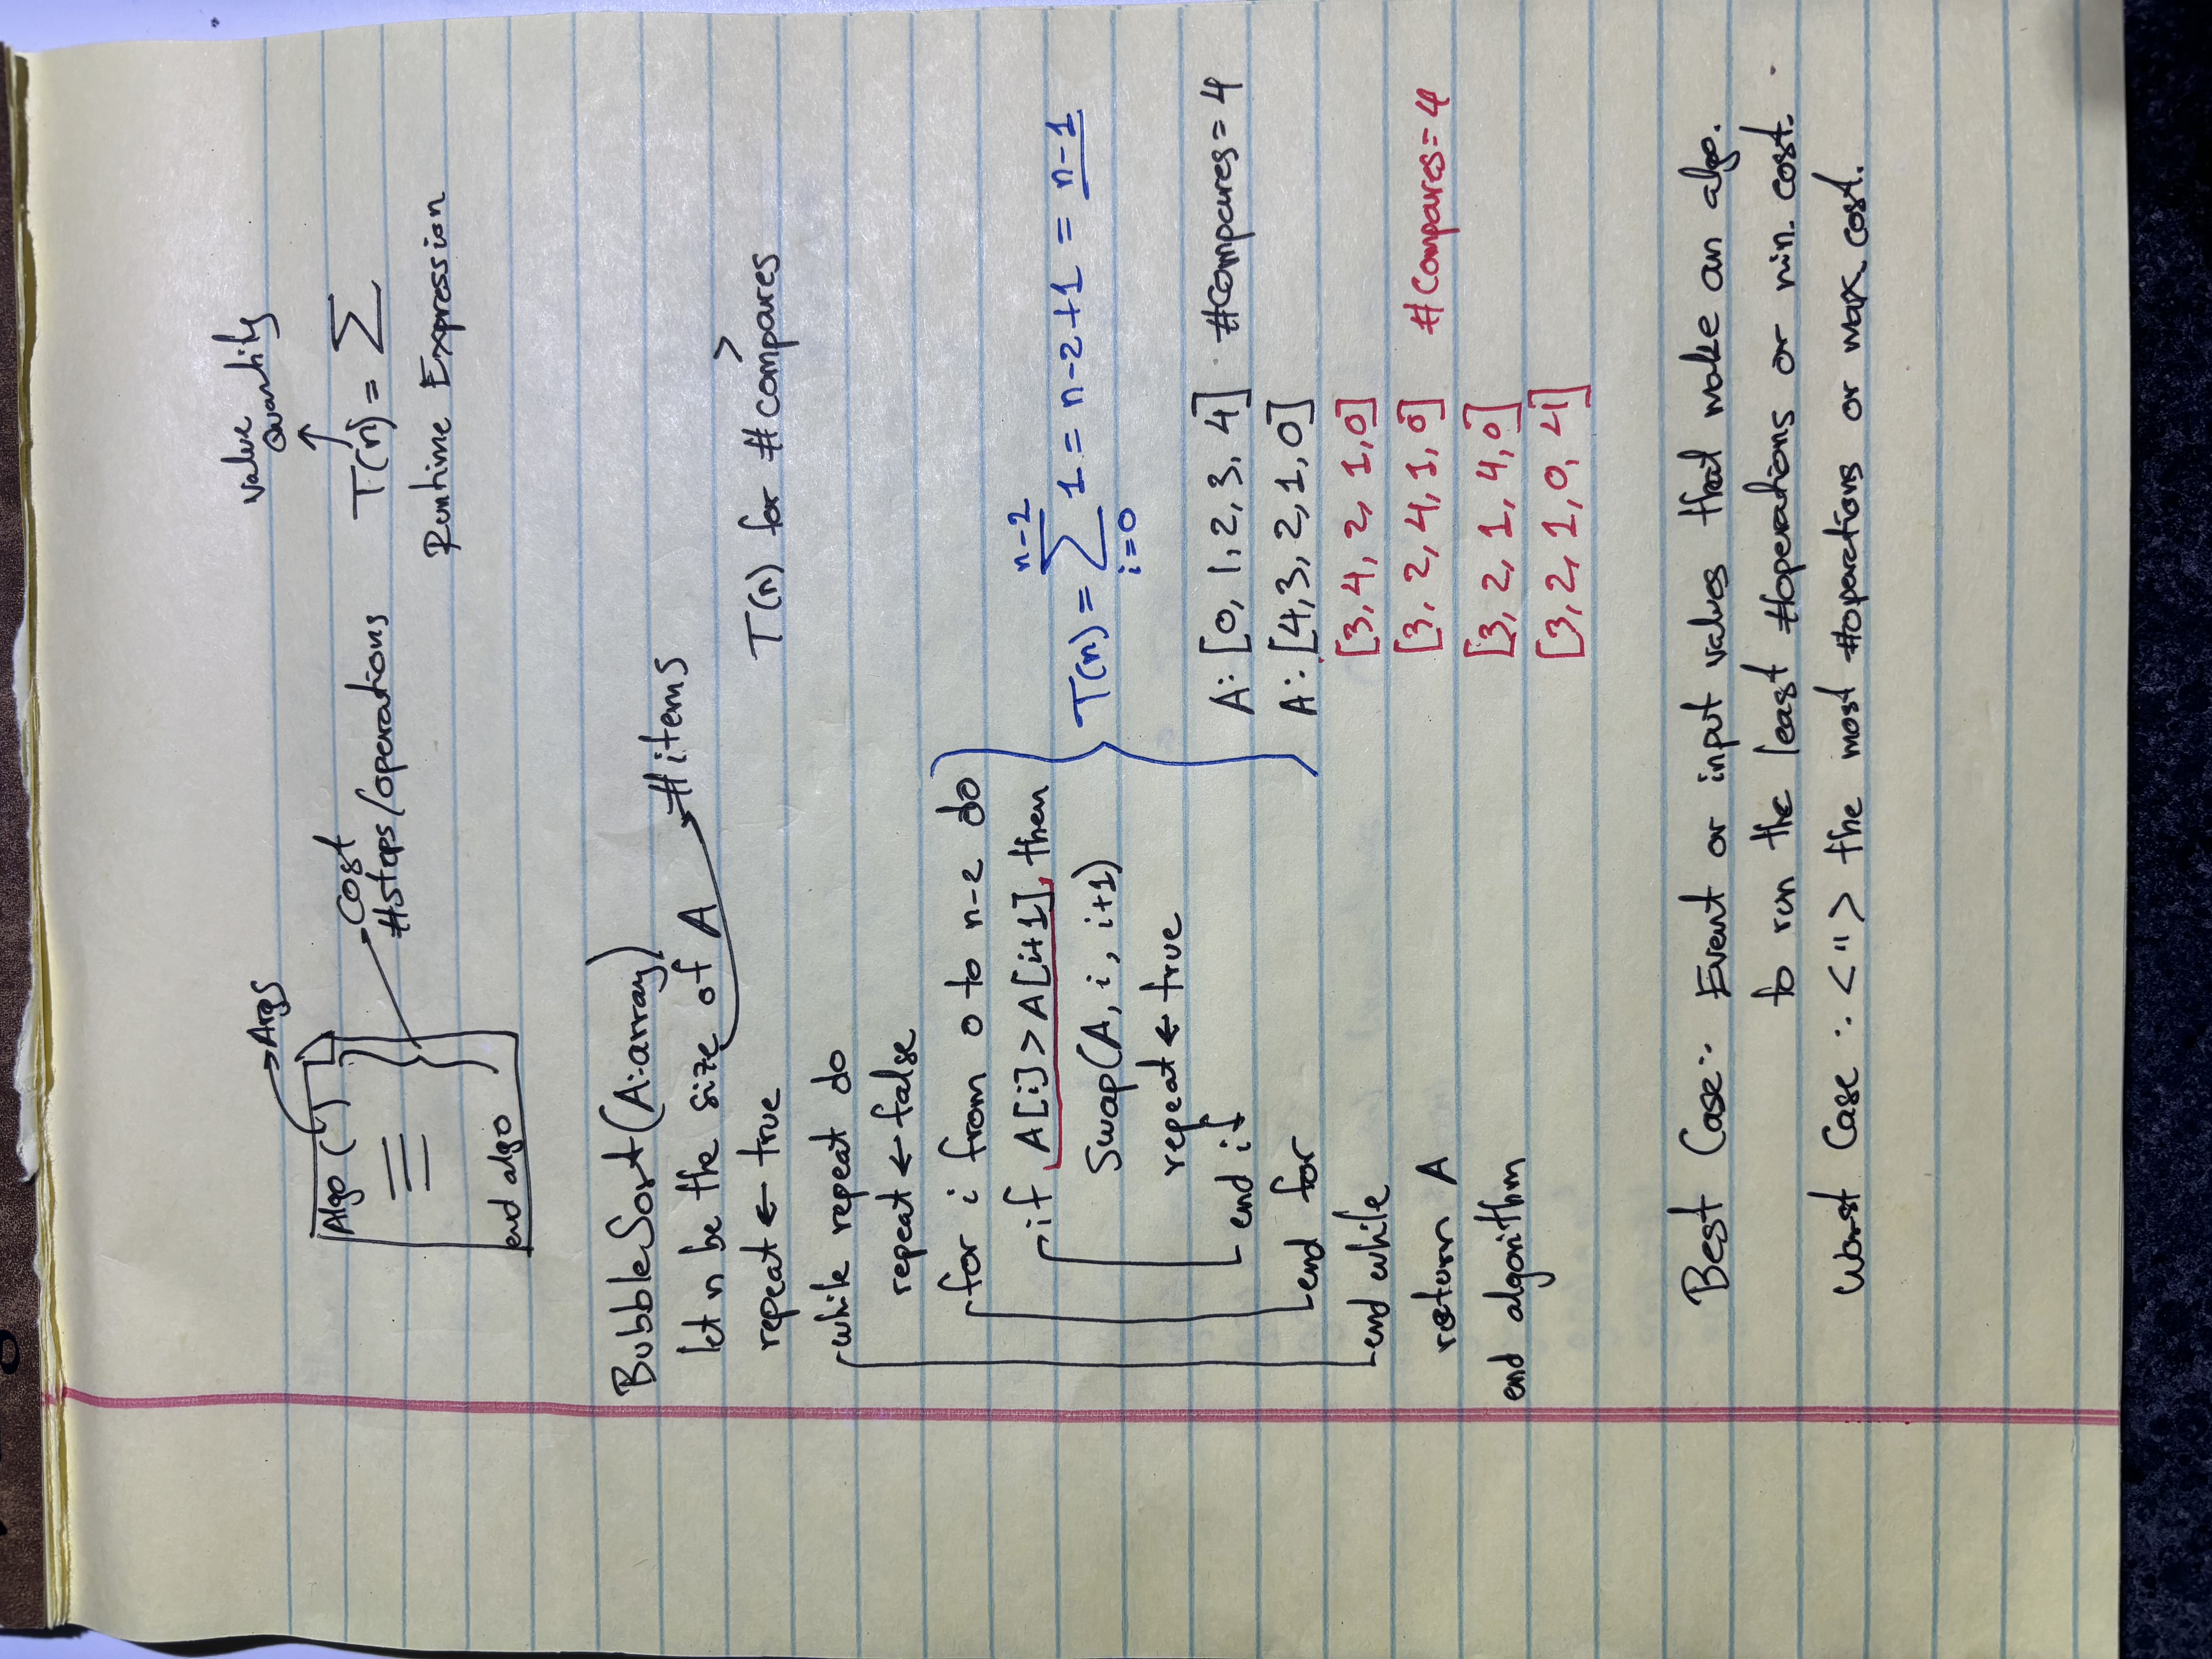 Args
Algo ( )
cost
#steps/operations
end algo
value
Quantity
T(n) = Σ
Runtime Expression
BubbleSort(A:array)
let n be the size of A
#items
repeat ← true
>
T(n) for #compares
while repeat do
repeat ← false
for i from 0 to n-2 do
if A[i] > A[i+1], then
Swap(A, i, i+1)
repeat ← true
end if
end for
end while
return A
end algorithm
n-2
T(n) = Σ 1 = n-2+1 = n-1
i=0
A: [0, 1, 2, 3, 4] #Compares = 4
A: [4, 3, 2, 1, 0]
[3, 4, 2, 1, 0]
[3, 2, 4, 1, 0] #Compares = 4
[3, 2, 1, 4, 0]
[3, 2, 1, 0, 4]
Best Case: Event or input values that make an algo.
to run the least #operations or min. cost.
Worst Case: <"> the most #operations or max. cost.